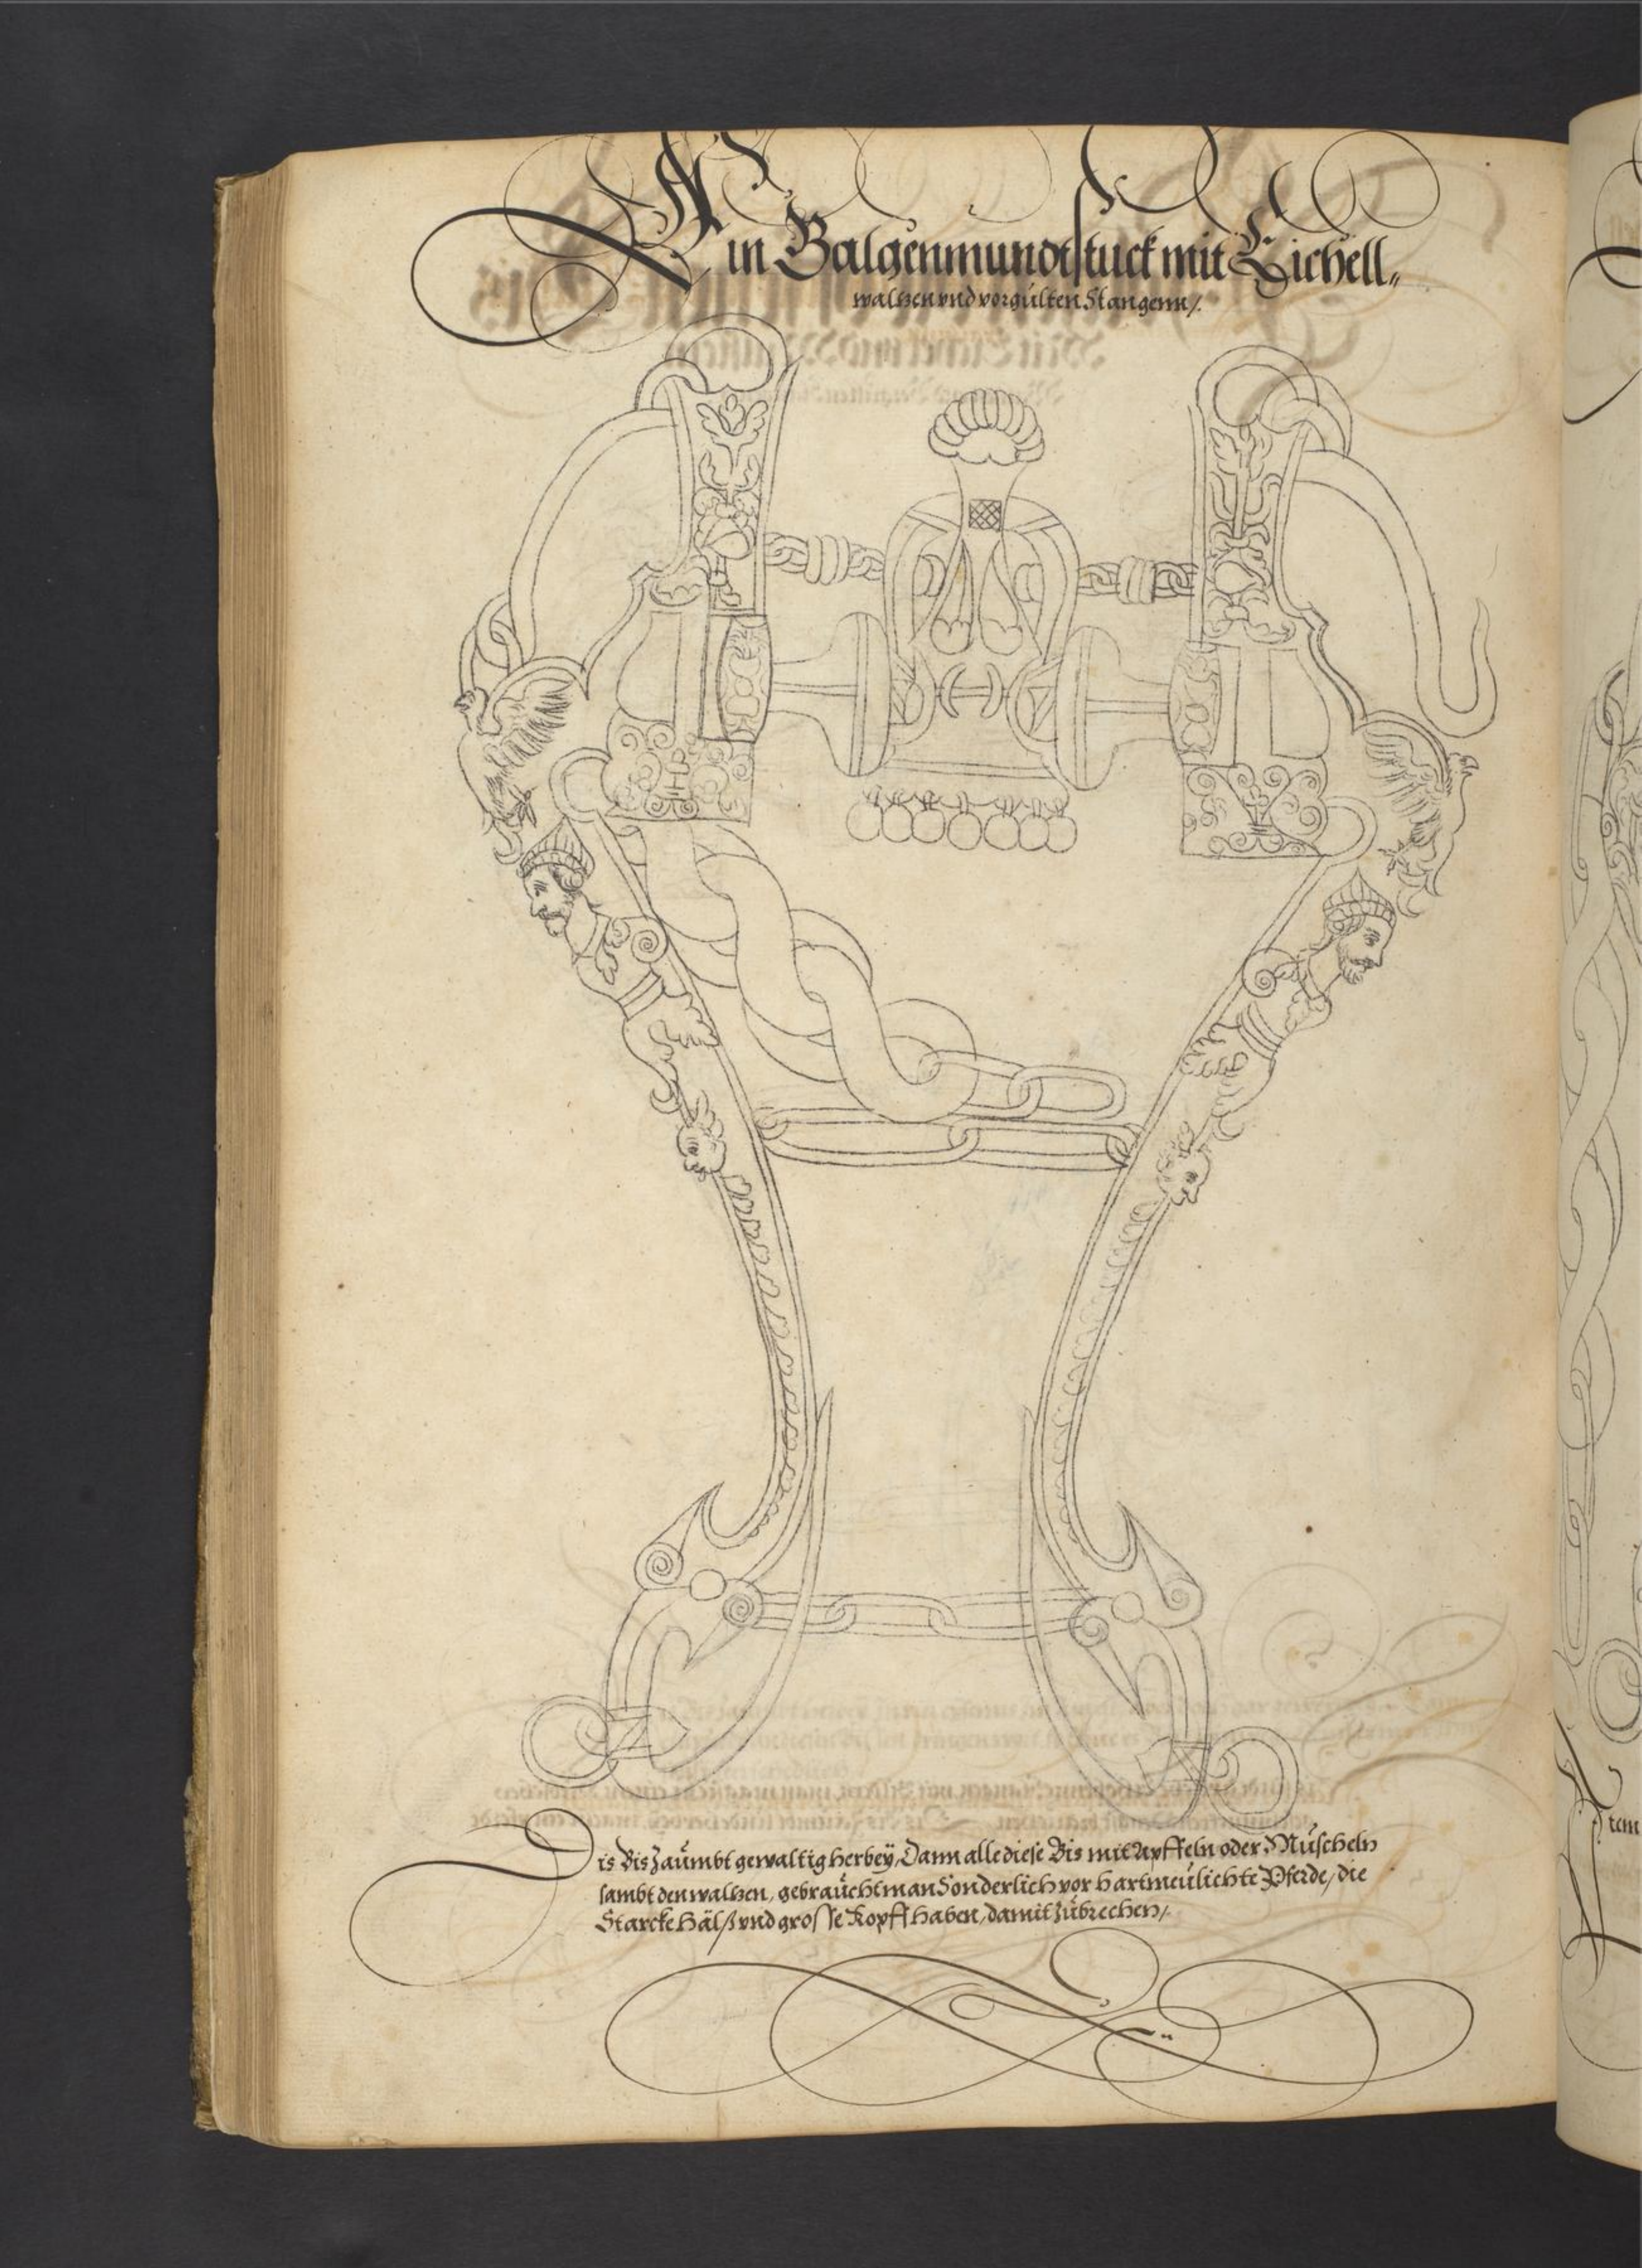 Ain Balgenmundtstuck mit Eichell„
waltzen vnd vorgülten Stangenn /.
Dis Bis Zaümbt gewaltig herbeÿ, Dann alle diese Bis mit Apffeln oder Müscheln
sambt den waltzen, gebraücht man Sonderlich vor hartmeülichte Pferde, die
Starcke Hälß vnd grosse Kopff haben, damit Zübrechen /.
tem